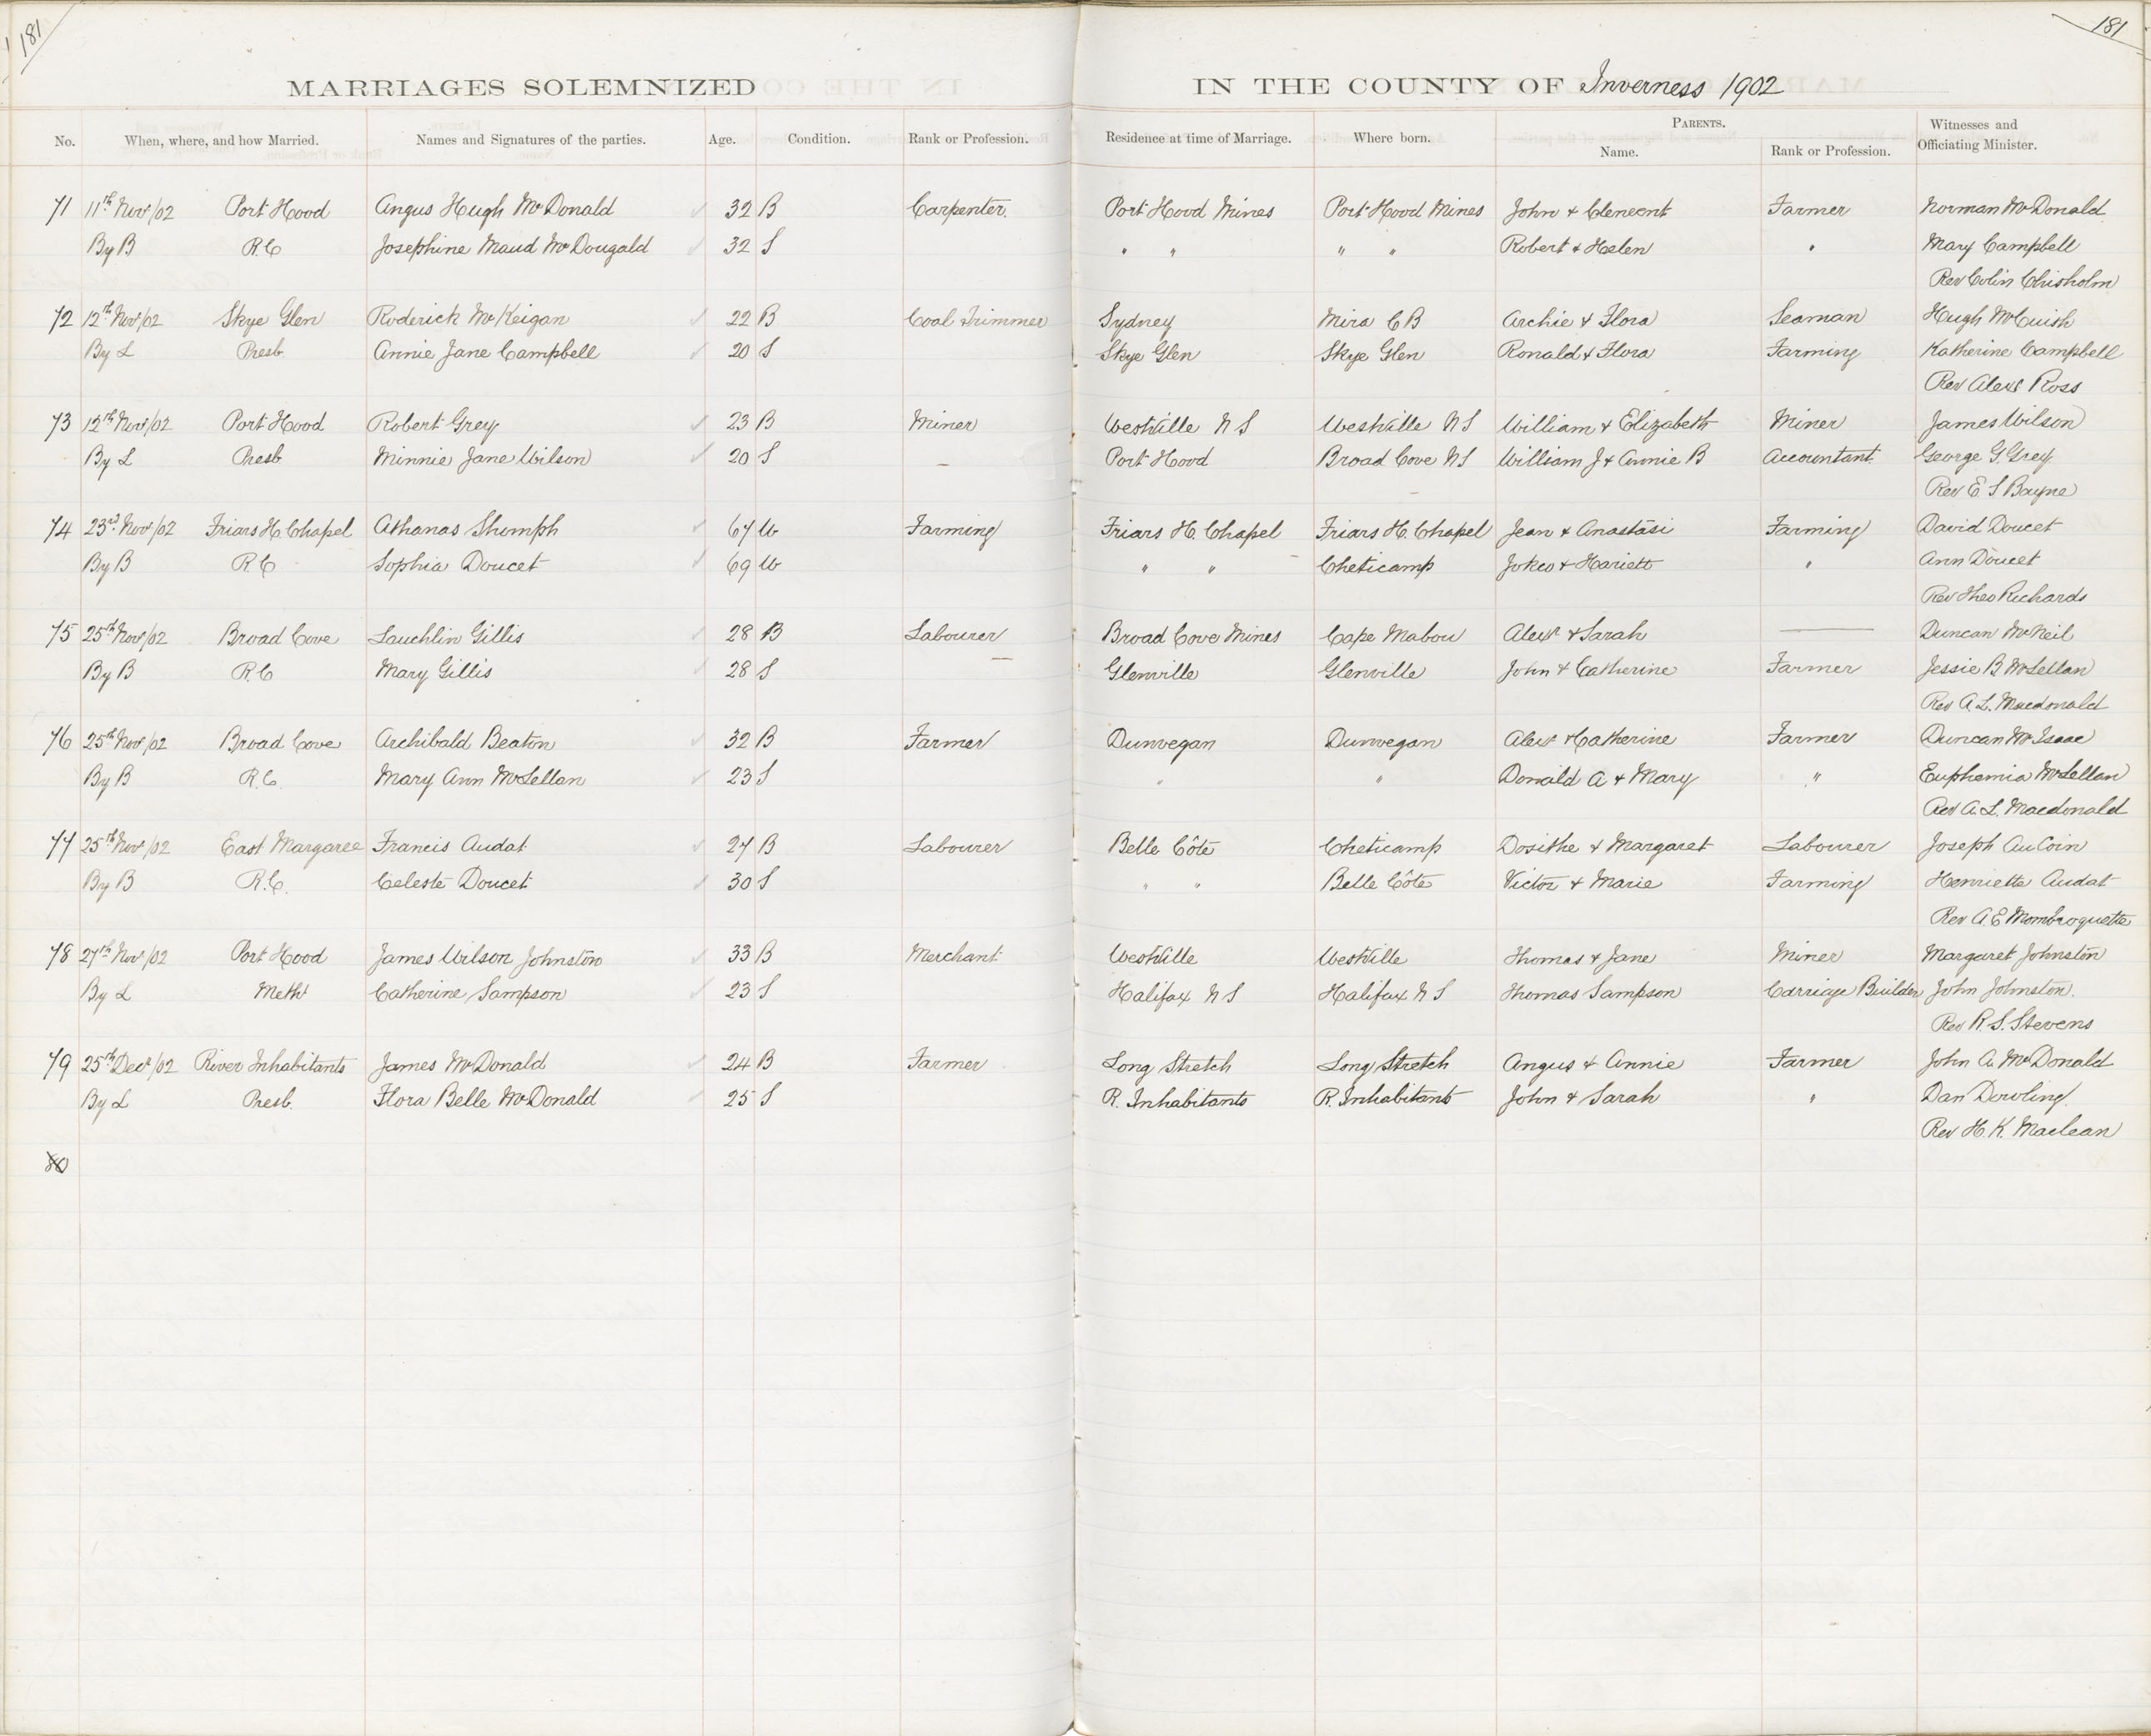 181 181
MARRIAGES SOLEMNIZED IN THE COUNTY OF Inverness 1902
No. When, where, and how Married. Names and Signatures of the parties. Age. Condition. Rank or Profession. Residence at time of Marriage. Where born. PARENTS. Name. Rank or Profession. Witnesses and Officiating Minister.
71 11th Nov/02 Port Hood Angus Hugh McDonald 32 B Carpenter. Port Hood Mines Port Hood Mines John & Clemcent Farmer Norman McDonald
By B R.C Josephine Maud McDougald 32 S " " " " Robert & Helen " Mary Campbell
Rev Colin Chisholm
72 12th Nov/02 Skye Glen Roderick McKeigan 22 B Coal Trimmer Sydney Mira C B Archie & Flora Seaman Hugh McCuish
By L Presb. Annie Jane Campbell 20 S Skye Glen Skye Glen Ronald & Flora Farming Katherine Campbell
Rev Alexr Ross
73 12th Nov/02 Port Hood Robert Grey 23 B Miner Westville N S Westville N S William & Elizabeth Miner James Wilson
By L Presb Minnie Jane Wilson 20 S – Port Hood Broad Cove N S William J & Annie B Accountant George G. Grey
Rev E S Bayne
74 23rd Nov/02 Friars H. Chapel Athanas Shomph 67 W Farming Friars H. Chapel Friars H. Chapel Jean & Anastasi Farming David Doucet
By B R.C Sophia Doucet 69 W " " Cheticamp & Hariett " Ann Doucet
Rev Theo Richards
75 25th Nov/02 Broad Cove Lauchlin Gillis 28 B Labourer Broad Cove Mines Cape Mabou Alexr & Sarah — Duncan McNeil
By B R.C Mary Gillis 28 S – Glenville Glenville John & Catherine Farmer Jessie B McLellan
Rev A. L. Macdonald
76 25th Nov/02 Broad Cove Archibald Beaton 32 B Farmer Dunvegan Dunvegan Alexr & Catherine Farmer Duncan McIsaac
By B R.C. Mary Ann McLellan 23 S " " Donald A & Mary " Euphemia McLellan
Rev A. L. Macdonald
77 25th Nov/02 East Margaree Francis Audat 27 B Labourer Belle Côte Cheticamp Dosithe & Margaret Labourer Joseph AuCoin
By B R.C. Celeste Doucet 30 S " " Belle Côte Victor & Marie Farming Henriette Audat
Rev A. E Mombroquette
78 27th Nov/02 Port Hood James Wilson Johnston 33 B Merchant Westville Westville Thomas & Jane Miner Margaret Johnston
By L Meth Catherine Sampson 23 S Halifax N S Halifax N S Thomas Sampson Carriage Builder John Johnston.
Rev R. S. Stevens
79 25th Decr/02 River Inhabitants James McDonald 24 B Farmer Long Stretch Long Stretch Angus & Annie Farmer John A. McDonald
By L Presb. Flora Belle McDonald 25 S R. Inhabitants R. Inhabitants John & Sarah " Dan Dowling.
Rev H. K. Maclean
80